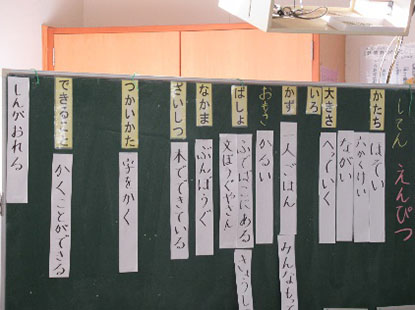 してん えんぴつ
かたち
ほそい
六かくけい
ながい
大きさ
へっていく
いろ
かず
一人一ごはん
みんなもって
おもさ
かるい
ばしょ
ふでばこにある
文ぼうぐやさん
きょうし
なかま
ぶんぼうぐ
ざいしつ
木でできている
つかいかた
字をかく
できること
かくことができる
しんがおれる